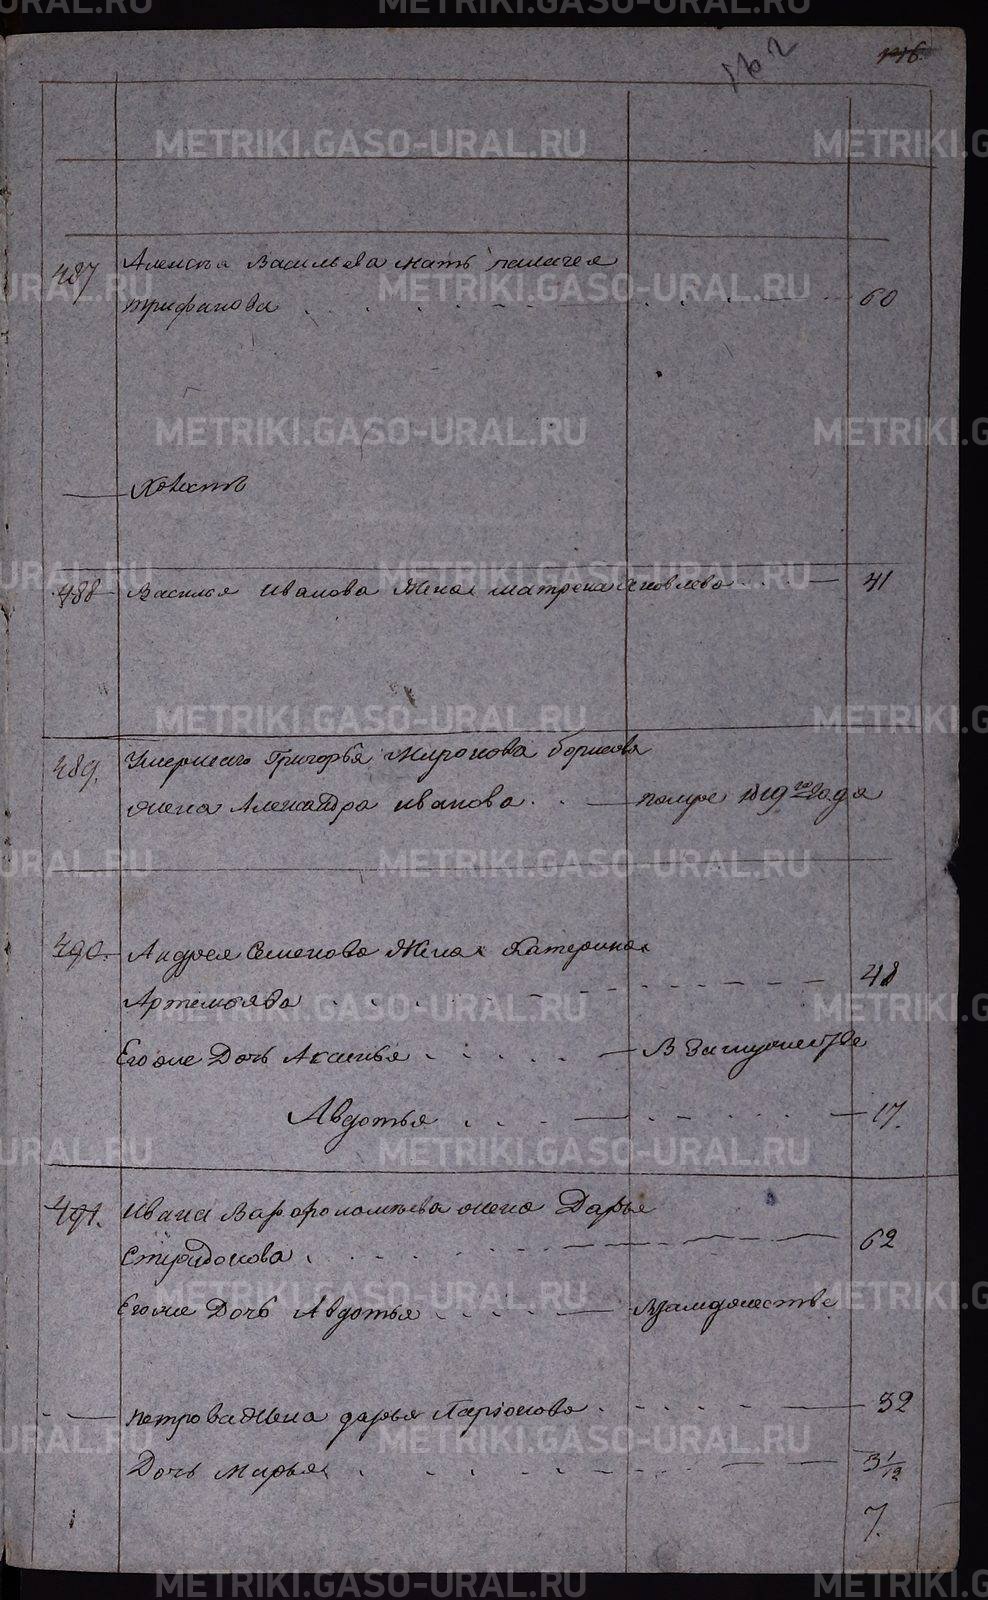 162
176.
487 Алексѣя Васильева мать
Трифанова 60
488 Василья Иванова Жена матрена Яковлева 41
489. Умершаго Григорья Миронова борисова
жена Александра иванова. помре 1819 го года
490. Андрея Семенова Жена Катерина
Артемьева 48
Егоже Дочь Аксинья В Замужестве
Авдотья 17.
491. Ивана Варфоломѣева жена Дарья
Спиридонова 62
Егоже Дочь Авдотья Взамужестве
петрова Жена дарья Ларионова 32
Дочь Марья 3 1/12
7.
METRIKI.GASO-URAL.RU